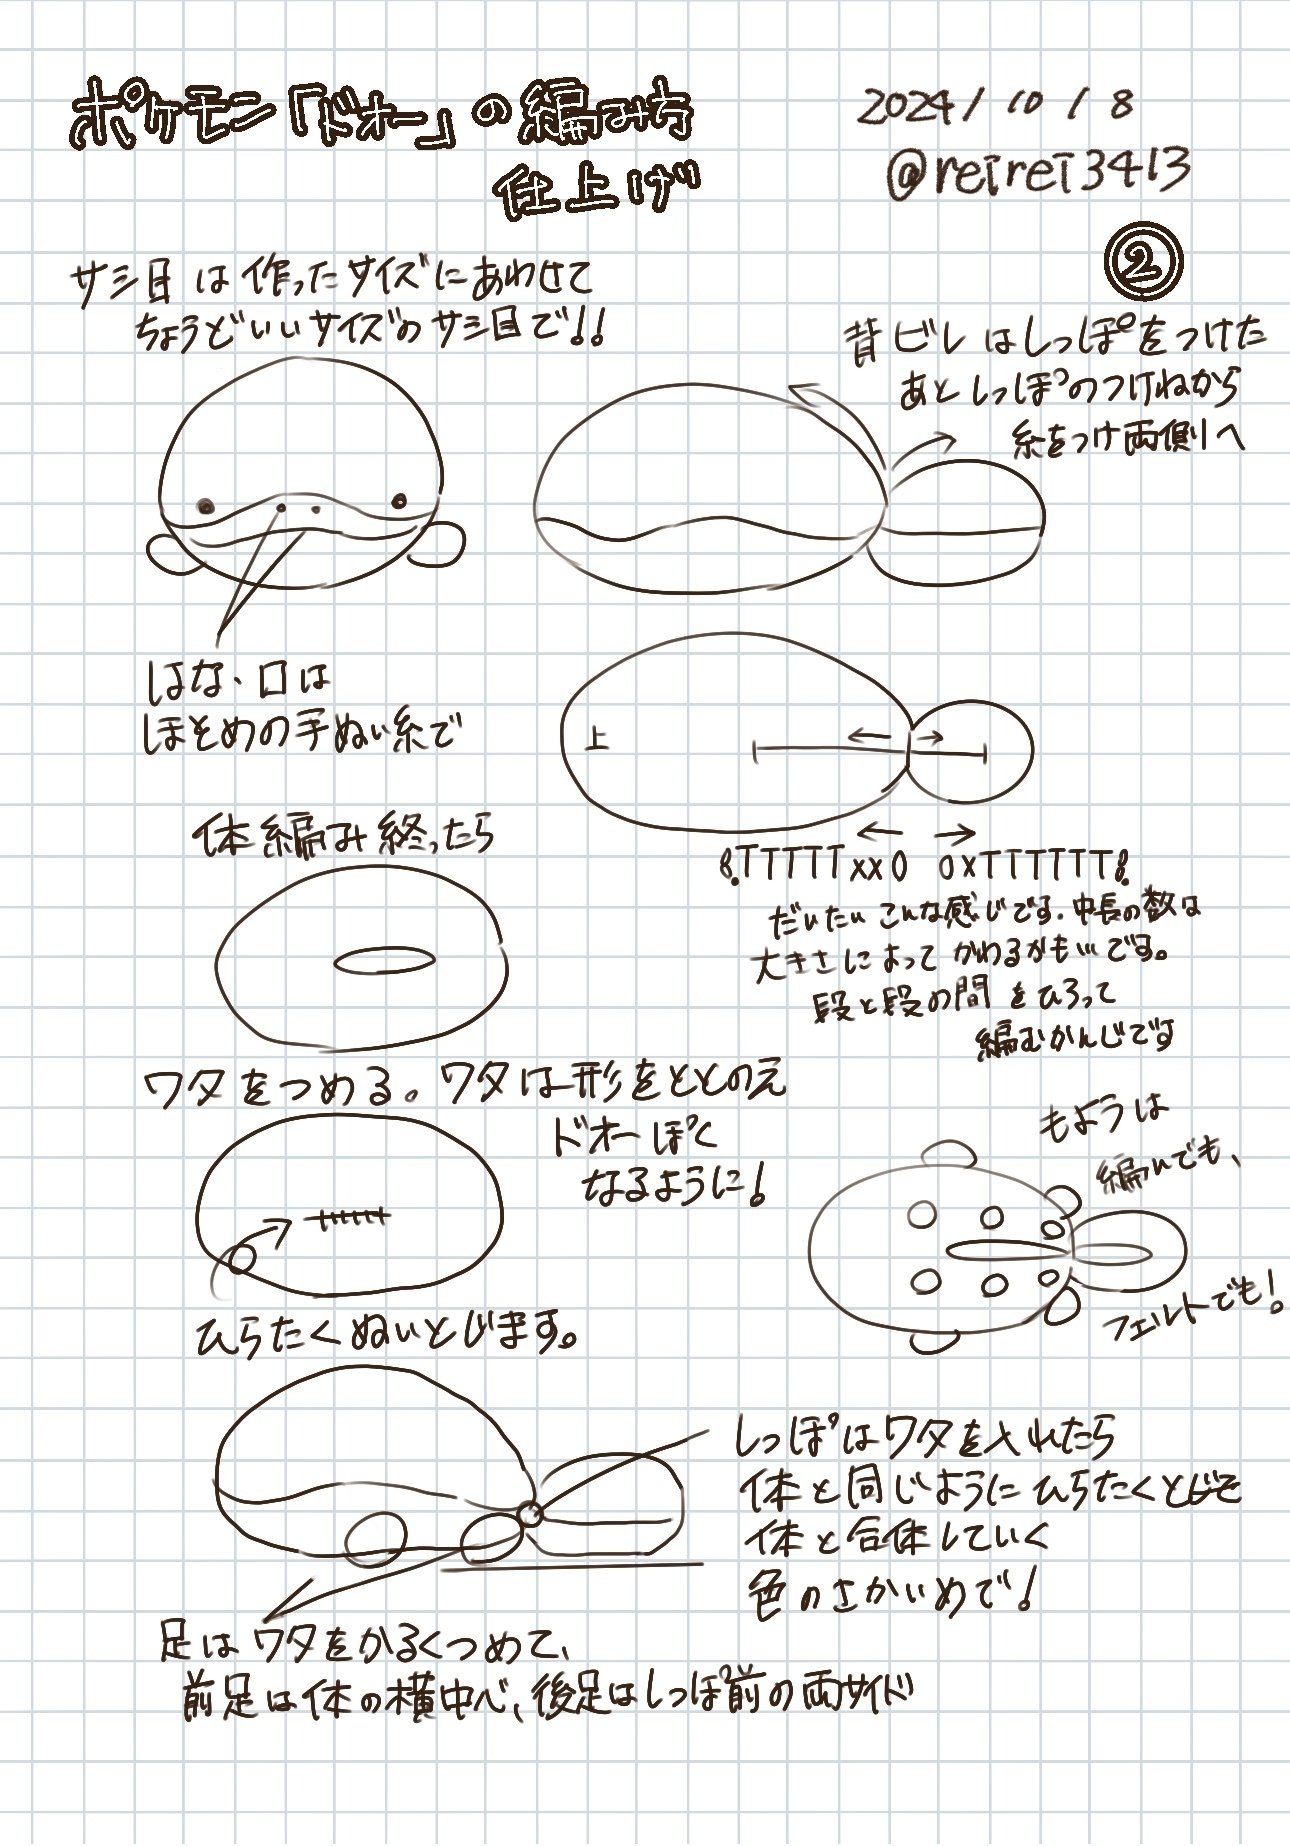 ポケモン「ドオー」の編み方
仕上げ
2024/10/8
@reirei3413
②
サシ目は作ったサイズにあわせて
ちょうどいいサイズのサシ目で!!
はな・口は
ほそめの手ぬい糸で
体編み終ったら
ワタをつめる。ワタは形をととのえ
ドオーぽく
なるように!
ひらたくぬいとじます。
足はワタをかるくつめて、
前足は体の横中心、後足はしっぽ前の両サイド
背ビレはしっぽをつけた
あとしっぽのつけねから
糸をつけ両側へ
上
← →
8.TTTTTxx0 0xTTTTTT8.
だいたいこんな感じです。中長の数は
大きさによってかわるかもいです。
段と段の間をひろって
編むかんじです
もようは
編んでも、
フェルトでも!
しっぽはワタを入れたら
体と同じようにひらたくとじを
体と合体していく
色のさかいめで!